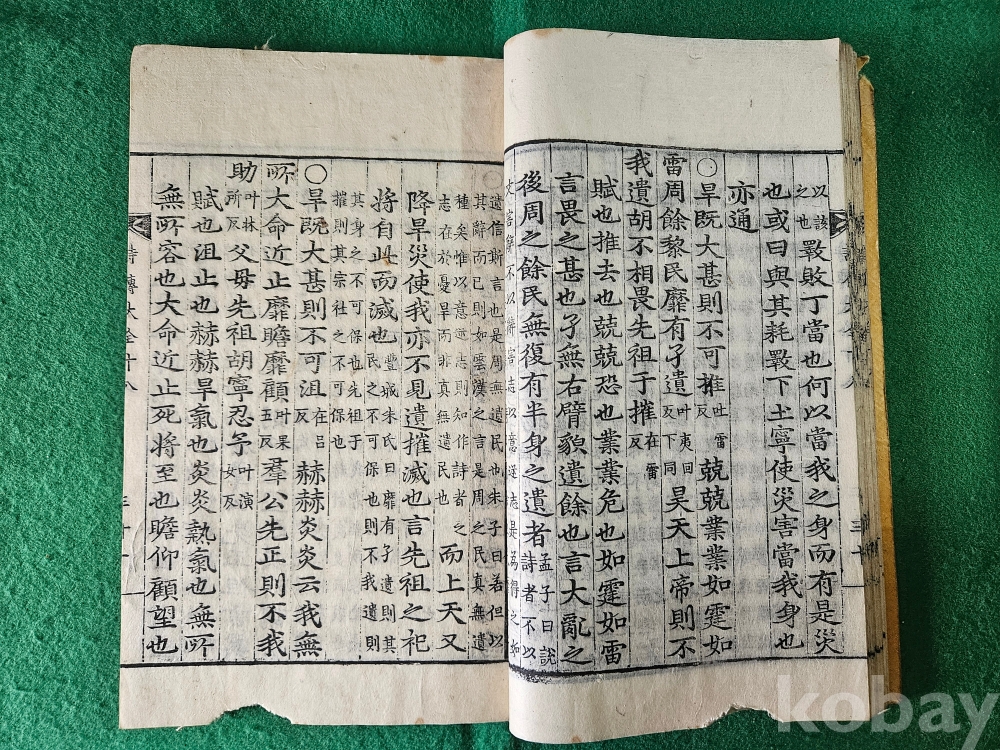 以該之也斁敗丁當也何以當我之身而有是災
也或曰與其耗斁下土寧使災害當我身也
亦通
〇旱既大甚則不可推吐雷反兢兢業業如霆如
雷周餘黎民靡有孑遺叶夷回反下同昊天上帝則不
我遺胡不相畏先祖于摧在雷反
賦也推去也兢兢恐也業業危也如霆如雷
言畏之甚也孑無右臂貌遺餘也言大亂之
後周之餘民無復有半身之遺者孟子曰說詩者不以
文害辭不以辭害志以意逆志是為得之如
遺信斯言也是周無遺民也朱子曰若但以
其辭而已則如雲漢之言是周之民真無遺
種矣惟以意逆志則知作詩者之
志在於憂旱而非真無遺民也而上天又
降旱災使我亦不見遺摧滅也言先祖之祀
將自此而滅也豐城朱氏曰靡有孑遺則其
民之不可保也則不我遺則
其身之不可保也先祖于
摧則其宗社之不可保也
〇旱既大甚則不可沮在呂反赫赫炎炎云我無
所大命近止靡瞻靡顧叶果五反羣公先正則不我
助叶林所反父母先祖胡寧忍予叶演女反
賦也沮止也赫赫旱氣也炎炎熱氣也無所
無所容也大命近止死將至也瞻仰顧望也
詩傳大全十八
kobay